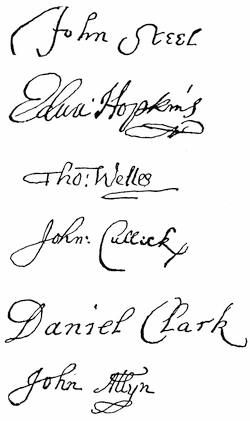 John Steel
Edw: Hopkins
Tho: Welles
John: Cullick
Daniel Clark
John Allyn